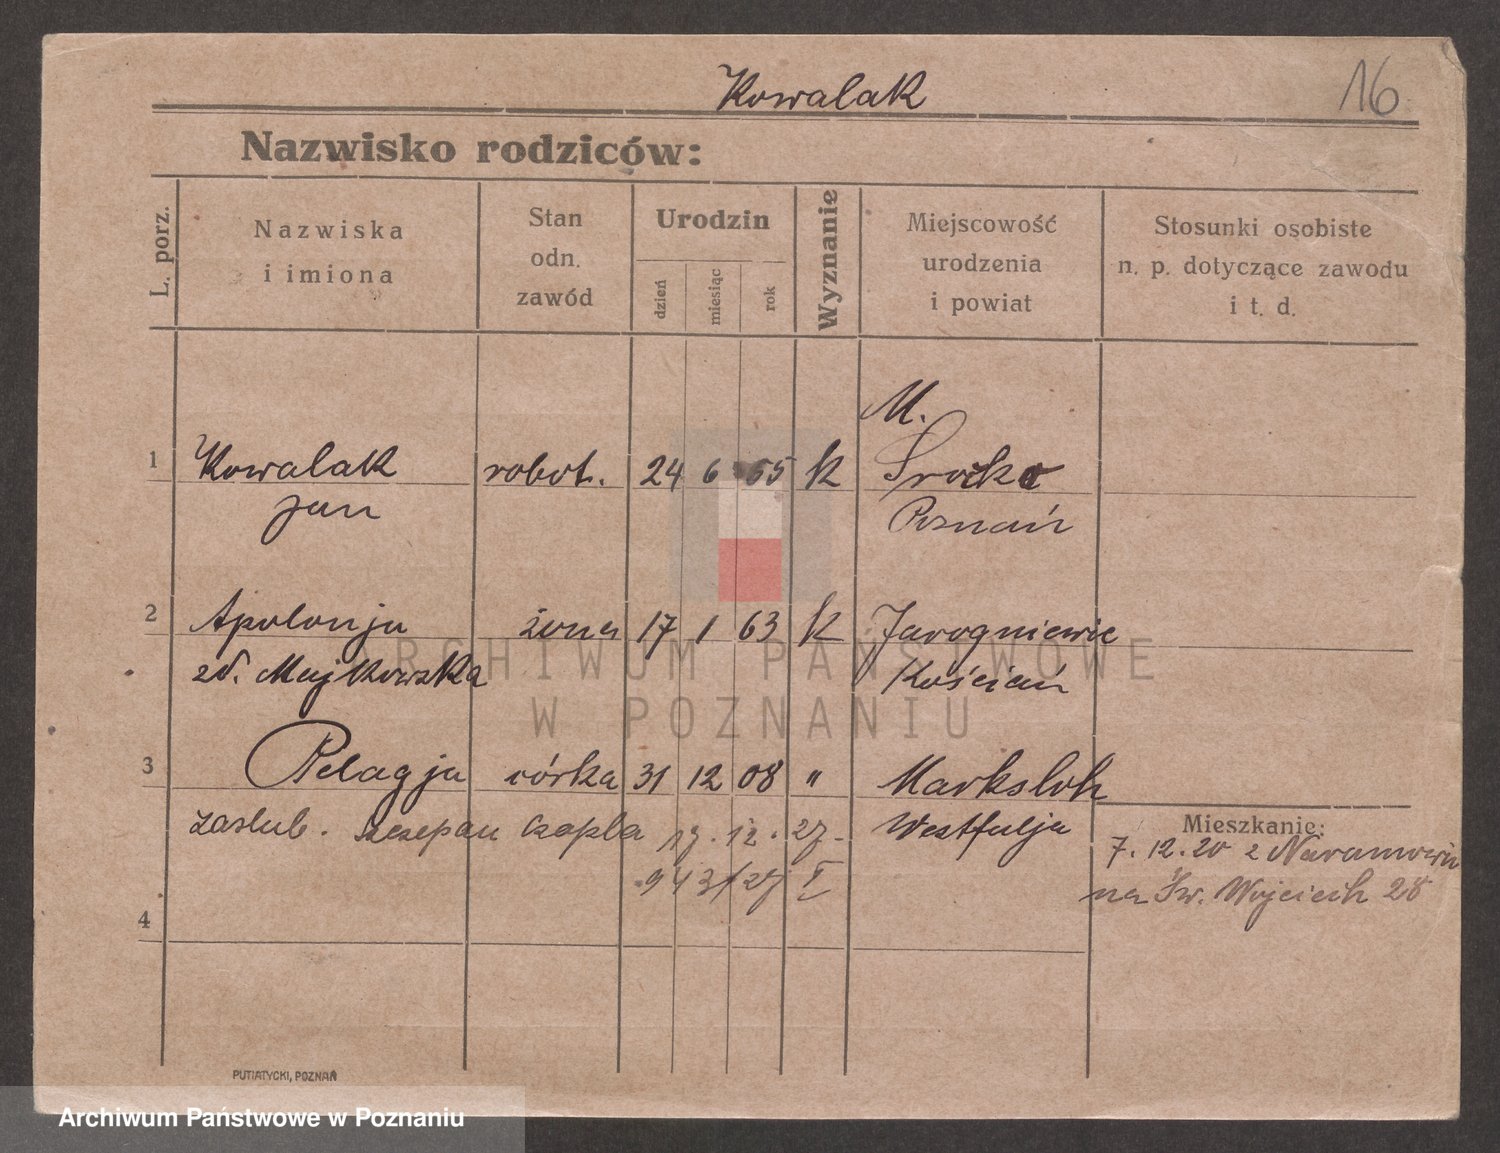 Kowalak
16
Nazwisko rodziców:
L. porz.
Nazwiska
i imiona
Stan
odn.
zawód
Urodzin
dzień
miesiąc
rok
Wyznanie
Miejscowość
urodzenia
i powiat
Stosunki osobiste
n. p. dotyczące zawodu
i t. d.
M.
1 Kowalak robot. 24 6 65 k Srocko
Jan Poznań
2 Apolonja żona 17 1 63 k Jarogniewic
zd. Majkowska Kościan
3 Pelagja córka 31 12 08 " Marksloh
zaslub. Szczepan Czapla 17. 12. 27. Westfalja
Mieszkanie:
7. 12. 20 z Naramowic
943/27 I na Św. Wojciech 28
4
PUTIATYCKI, POZNAŃ
ARCHIWUM PAŃSTWOWE
W POZNANIU
Archiwum Państwowe w Poznaniu